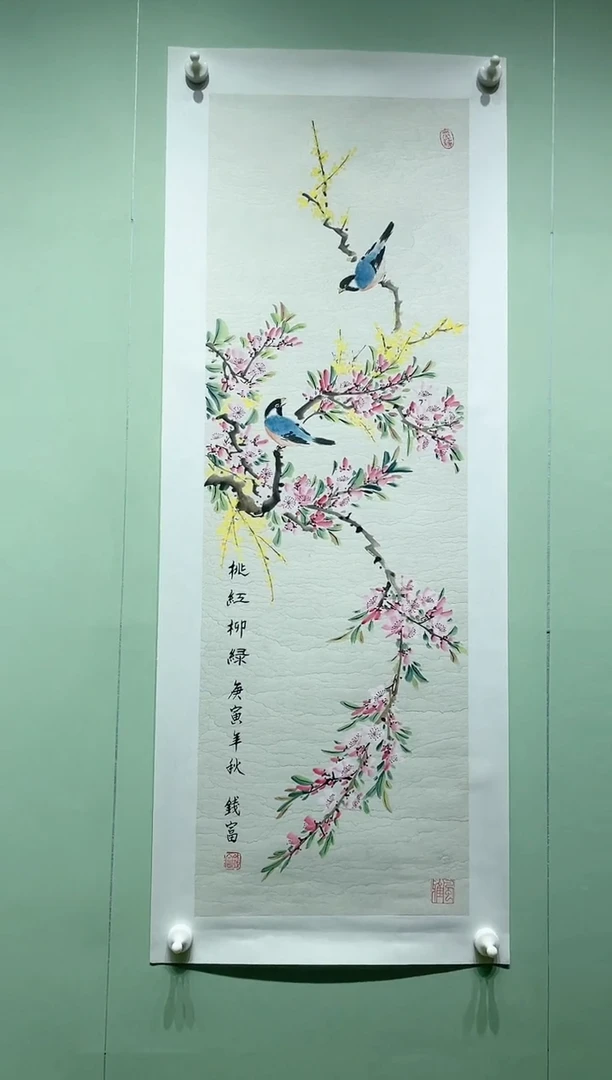 桃紅柳緑庚寅年秋錢富